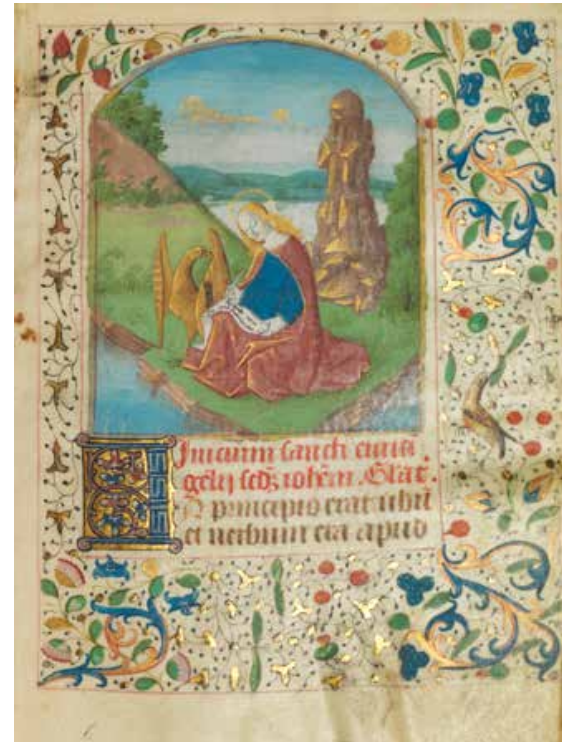 Iniciũm sancti euan
gelij scdʒ iohēm. Glāt.
N principio erat uerbũ
et uerbum erat apud